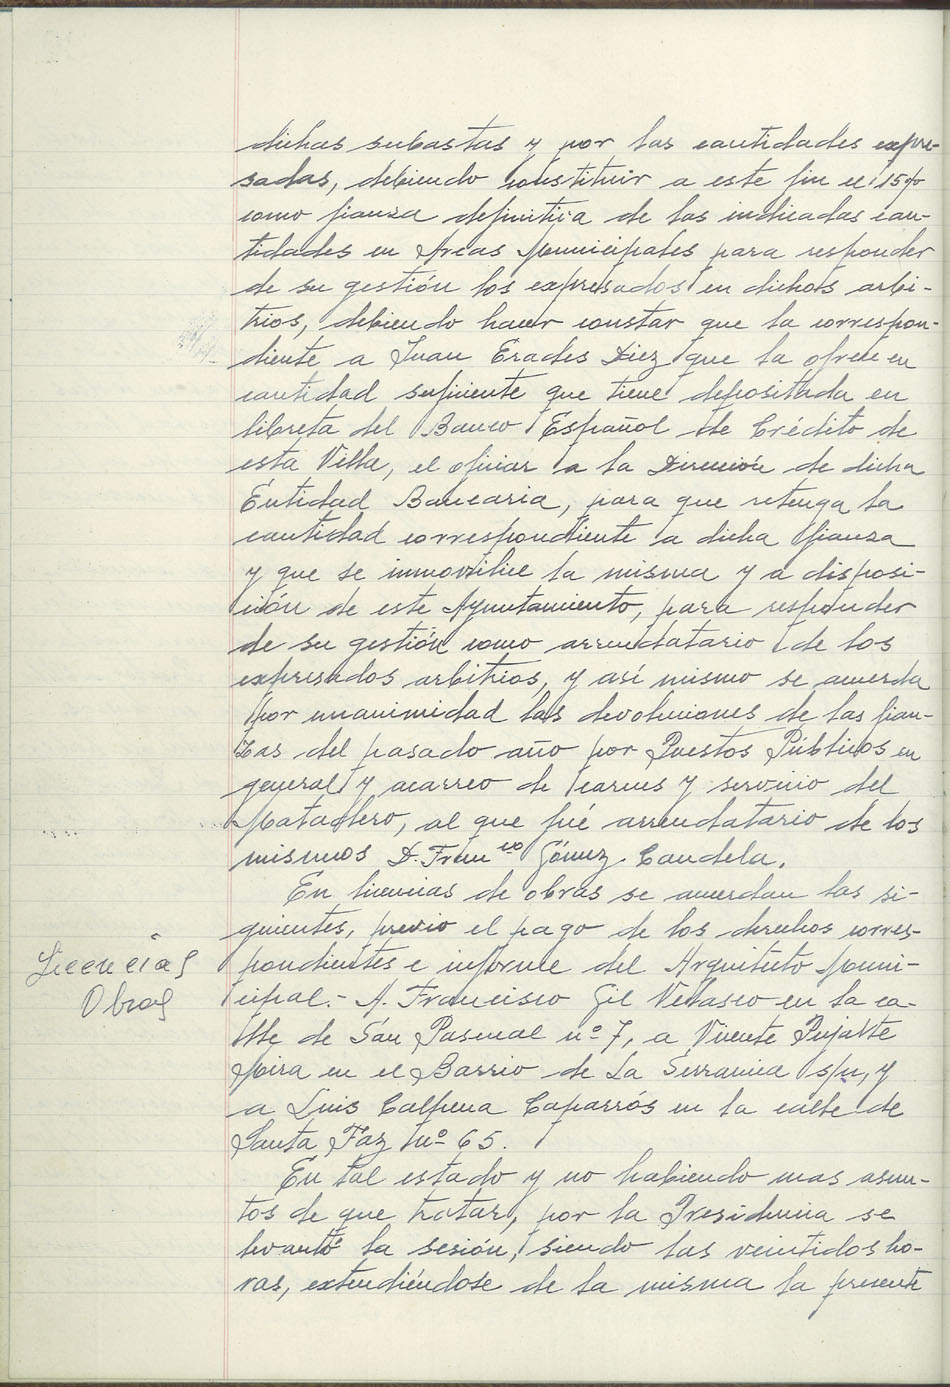 dichas subastas y por las cantidades expre-
sadas, debiendo constituir a este fin el 15%
como fianza definitiva de las indicadas can-
tidades en Arcas Municipales para responder
de su gestión los expresados en dichos arbi-
trios, debiendo hacer constar que la correspon-
diente a Juan Erades Diez que la ofrece en
cantidad suficiente que tiene depositada en
libreta del Banco Español de Crédito de
esta Villa, el oficiar a la Dirección de dicha
Entidad Bancaria, para que retenga la
cantidad correspondiente a dicha fianza
y que se inmovilice la misma y a disposi-
ción de este Ayuntamiento, para responder
de su gestión como arrendatario de los
expresados arbitrios, y así mismo se acuerda
por unanimidad las devoluciones de las fian-
zas del pasado año por Puestos Públicos en
general y acarreo de carnes y servicio del
Matadero, al que fué arrendatario de los
mismos D. Franco Gómez Candela.
En licencias de obras se acuerdan las si-
guientes, previo el pago de los derechos corres-
Licencias
Obras
pondientes e informe del Arquitecto Muni-
cipal.- A. Francisco Gil Velasco en la ca-
lle de San Pascual nº 7, a Vicente Pujalte
Mira en el Barrio de La Serranica s/n, y
a Luis Calpena Caparrós en la calle de
Santa Faz nº 65.
En tal estado y no habiendo mas asun-
tos de que tratar, por la Presidencia se
levantó la sesión, siendo las veintidos ho-
ras, extendiéndose de la misma la presente